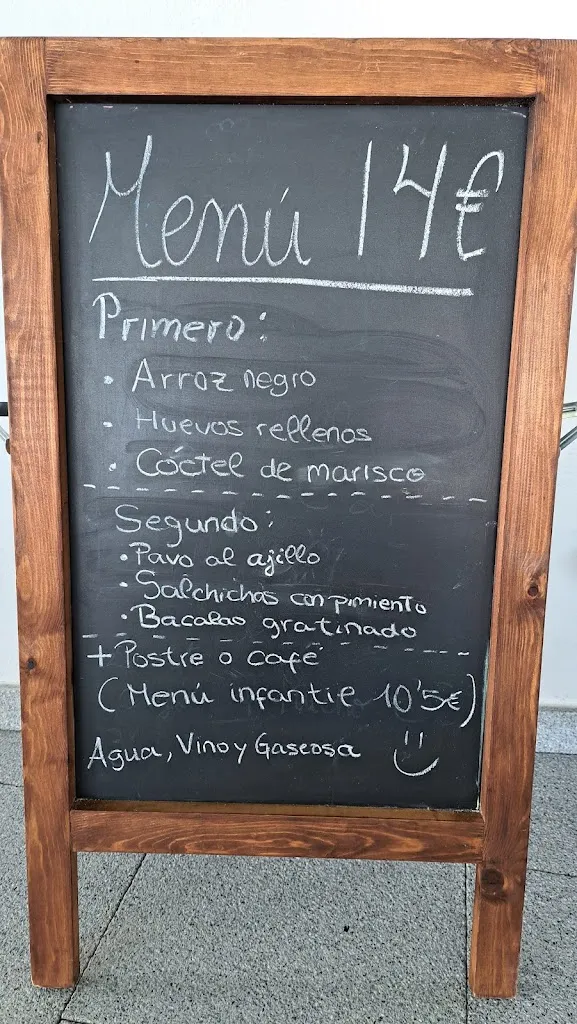 Menú 14€
Primero:
• Arroz negro
• Huevos rellenos
• Cóctel de marisco
Segundo:
• Pavo al ajillo
• Salchichas con pimiento
• Bacalao gratinado
+ Postre o café
(Menú infantil 10'5€)
Agua, Vino y Gaseosa